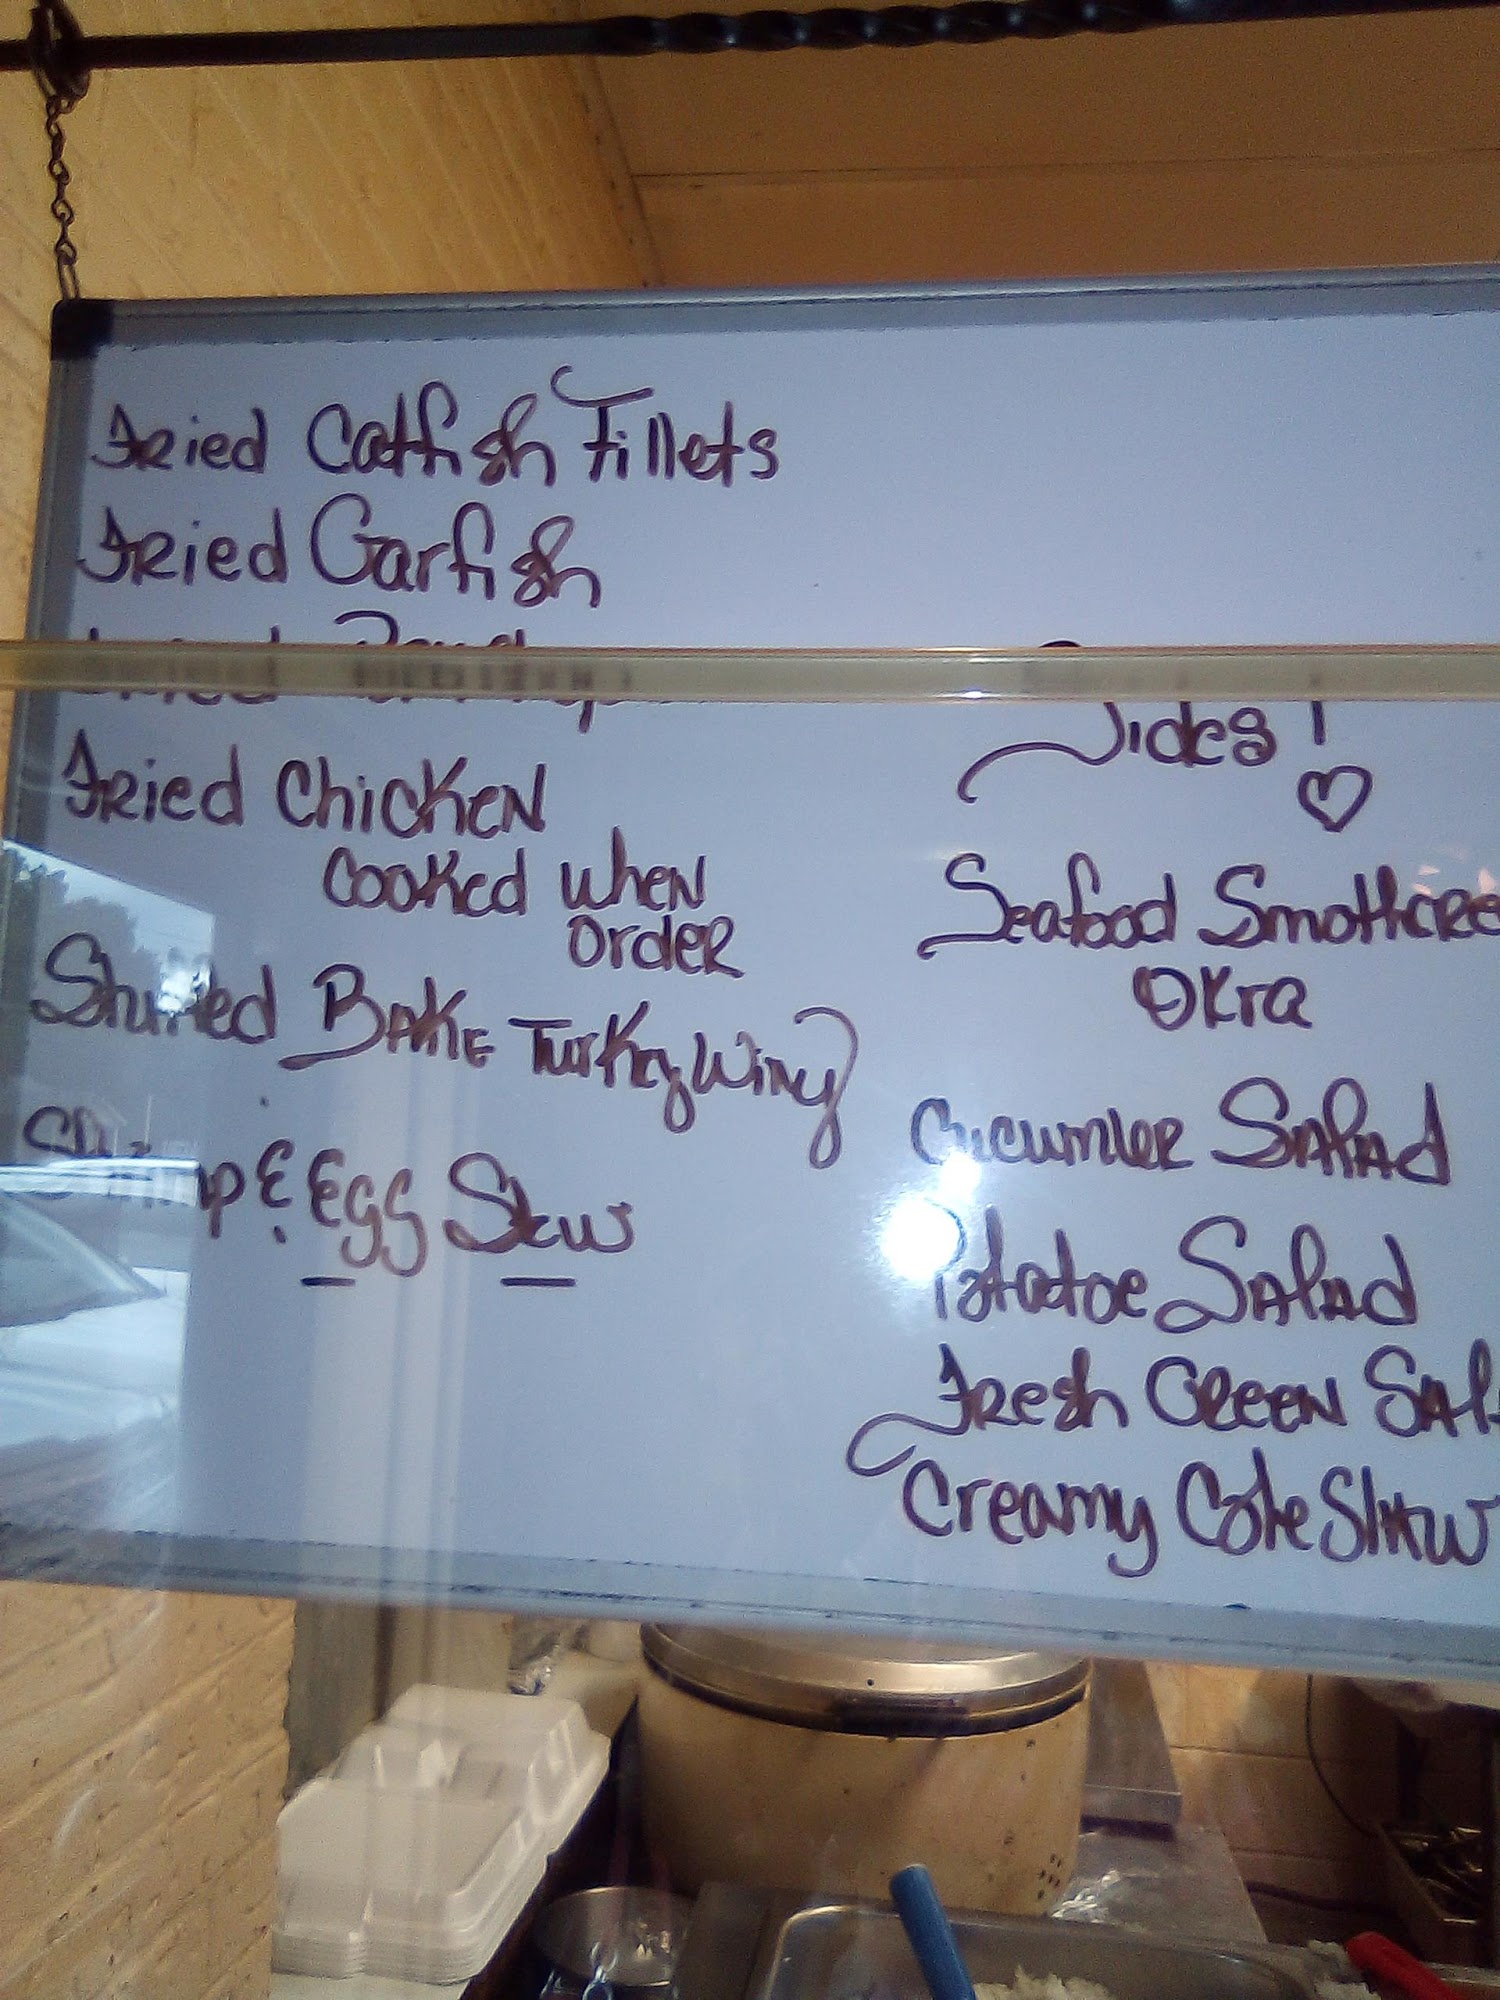 Fried Catfish Fillets
Fried Garfish
Fried
Fried Chicken
Cooked when
order
Stuffed BAKE Turkey Wing
Shrimp & Egg Stew
Sides!
Seafood Smothere
Okra
Cucumber Salad
Potatoe Salad
Fresh Green Sal
Creamy Cole Slaw